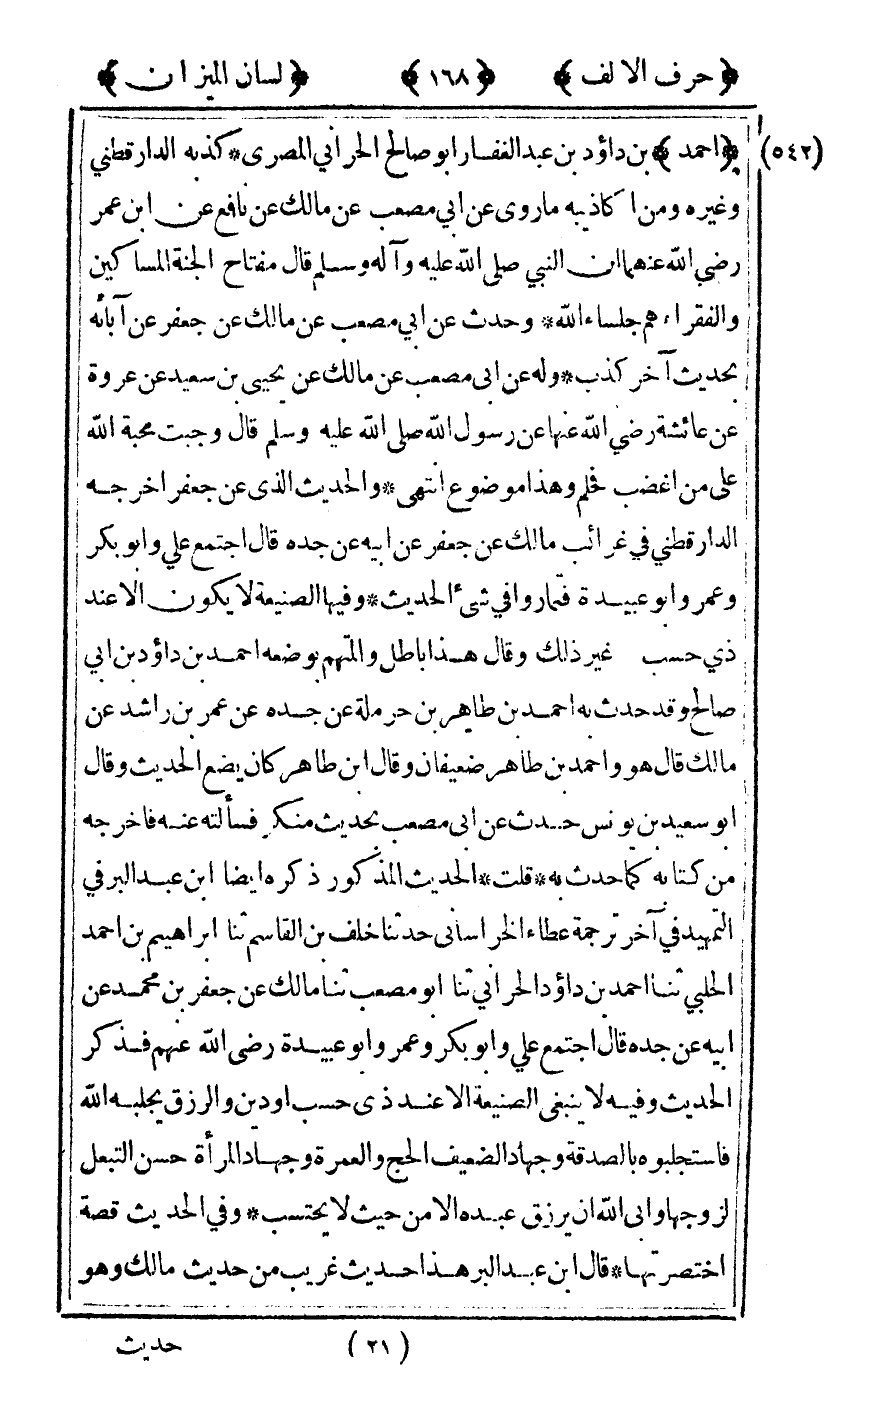 ﴿ حرف الالف ﴾ ﴿ ١٦٨ ﴾ ﴿ لسان الميزان ﴾
(٥٤٢) ﴿ احمد ﴾ بن داؤد بن عبد الغفار ابو صالح الحراني المصرى * كذبه الدار قطني
وغيره ومن اكاذيبه ماروى عن ابي مصعب عن مالك عن نافع عن ابن عمر
رضي الله عنهما ان النبي صلى الله عليه وآله وسلم قال مفتاح الجنة المساكين
والفقراء هم جلساء الله * وحدث عن ابي مصعب عن مالك عن جعفر عن آبائه
بحديث آخر كذب * وله عن ابى مصعب عن مالك عن يحيى بن سعيد عن عروة
عن عائشة رضي الله عنها عن رسول الله صلى الله عليه وسلم قال وجبت محبة الله
على من اغضب فحلم وهذا موضوع انتهى * والحديث الذى عن جعفر اخرجه
الدار قطني في غرائب مالك عن جعفر عن ابيه عن جده قال اجتمع علي وابو بكر
وعمر وابو عبيدة فتماروا في شئ الحديث * وفيها الصنيعة لا يكون الا عند
ذي حسب غير ذلك وقال هذا باطل والمتهم بوضعه احمد بن داؤد بن ابي
صالح وقد حدث به احمد بن طاهر بن حرملة عن جده عن عمر بن راشد عن
مالك قال هو واحمد بن طاهر ضعيفان وقال ابن طاهر كان يضع الحديث وقال
ابو سعيد بن يونس حدث عن ابى مصعب بحديث منكر فسألته عنه فاخرجه
من كتابه كما حدث به * قلت * الحديث المذكور ذكره ايضا ابن عبد البر في
التمهيد في آخر ترجمة عطاء الخراسانى حدثنا خلف بن القاسم ثنا ابراهيم بن احمد
الحلبي ثنا احمد بن داؤد الحراني ثنا ابو مصعب ثنا مالك عن جعفر بن محمد عن
ابيه عن جده قال اجتمع علي وابو بكر وعمر وابو عبيدة رضى الله عنهم فذكر
الحديث وفيه لا ينبغى الصنيعة الا عند ذى حسب اودين والرزق يجلبه الله
فاستجلبوه بالصدقة وجهاد الضعيف الحج والعمرة وجهاد المرأة حسن التبعل
لزوجها وابى الله ان يرزق عبده الا من حيث لا يحتسب * وفي الحديث قصة
اختصرتها * قال ابن عبد البر هذا حديث غريب من حديث مالك وهو
(٢١) حديث